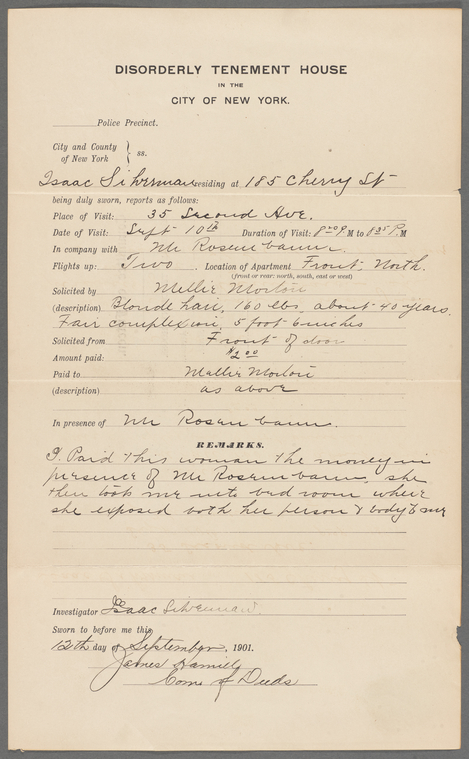 DISORDERLY TENEMENT HOUSE
IN THE
CITY OF NEW YORK.
Police Precinct.
City and County
of New York } ss.
Isaac Silverman residing at 185 Cherry St
being duly sworn, reports as follows:
Place of Visit: 35 Second Ave.
Date of Visit: Sept 10th Duration of Visit: P.M to 8 25 P.M
In company with Mr Rosenbaum.
Flights up: Two. Location of Apartment Front, North.
(front or rear: north, south, east or west)
Solicited by Mellie Morton
(description) Blonde hair, 160 lbs, about 40 years.
Fair complexion, 5 foot 6 inches
Solicited from Front of door
Amount paid: $2 00
Paid to Mallie Morton
(description) as above
In presence of Mr Rosenbaum.
REMARKS.
I Paid this woman the money in
persence of Mr Rosenbaum, she
then took me into bed room where
she exposed both her person & body to me
Investigator Isaac Silverman.
Sworn to before me this
12th day of September, 1901.
James Hamill
Com of Deeds